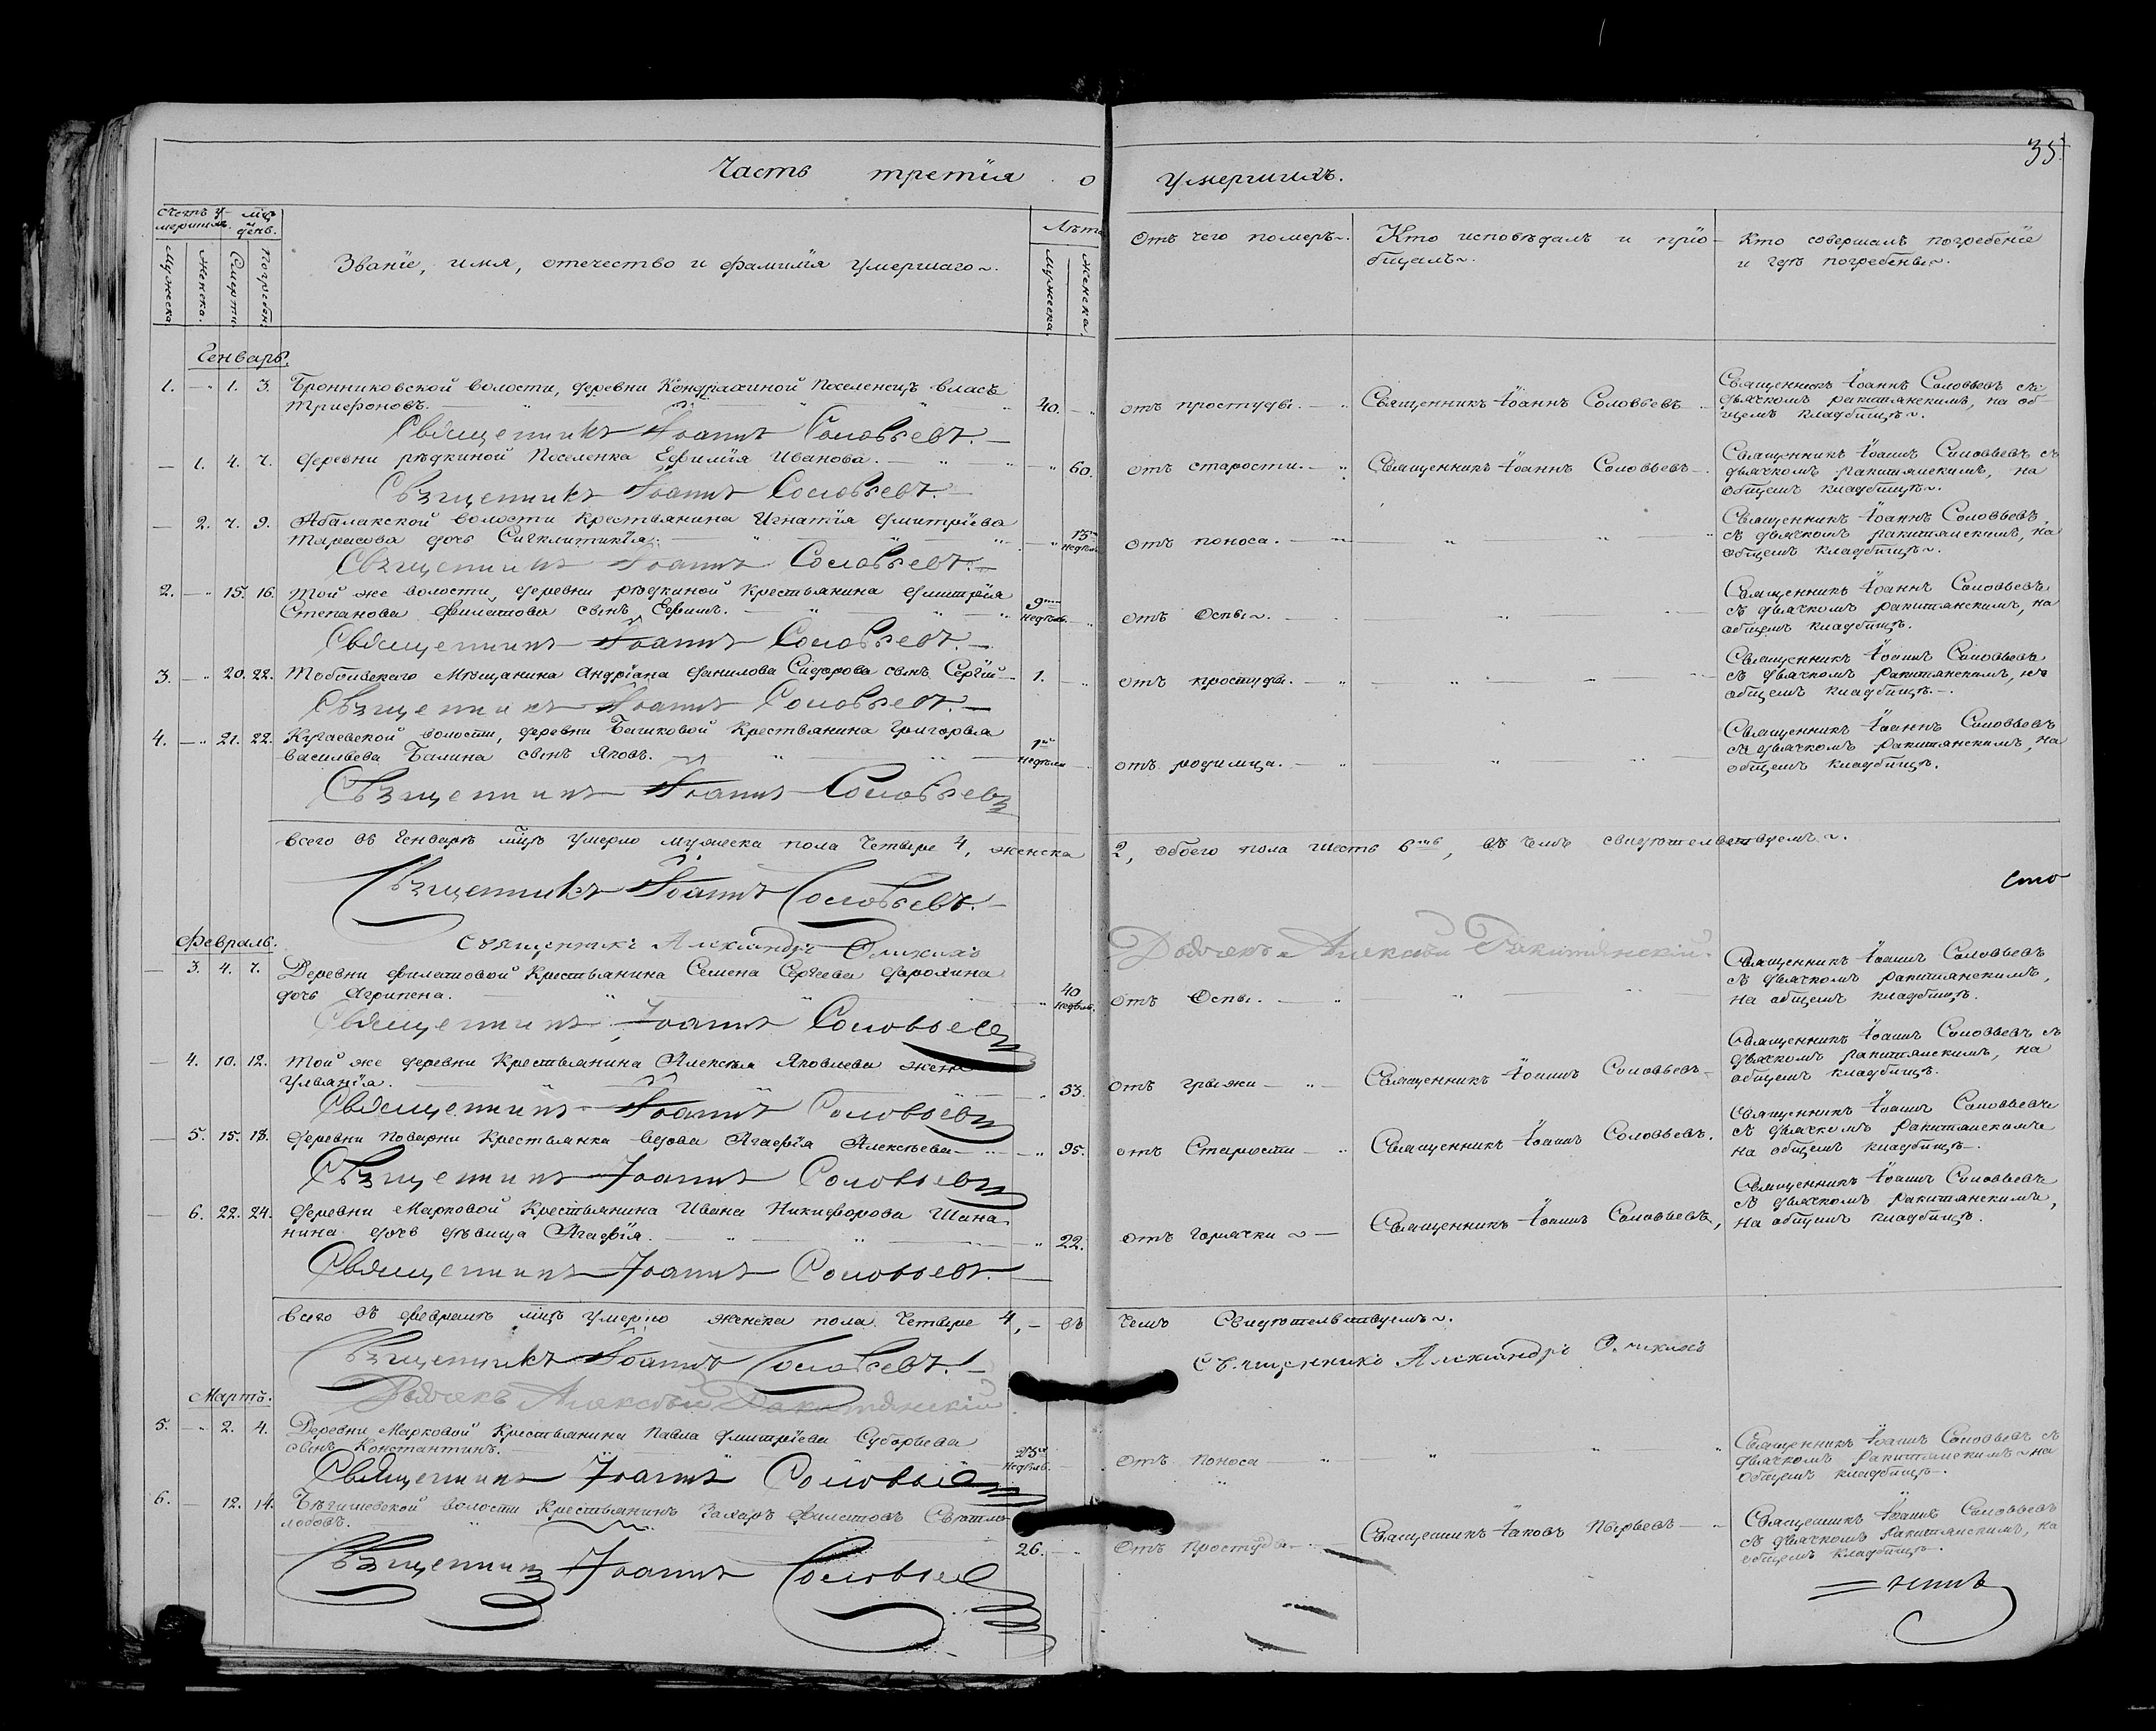 35.
Часть третїя о умершихъ.
Счетъ умершихъ.
мцъ день.
Мужеска
Женска.
Смерти
Погребен.
Званїе, имя, отечество и фамилїя умершаго.
Лета
Мужеска.
Женска.
Отъ чего померъ.
Кто исповѣдалъ и прїо-
бщалъ.
Кто совершалъ погребенїе
и гдѣ погребены.
Генварь.
1. 1. 3. Бронниковской волости, деревни Кондрахиной Поселенецъ Власъ
Трифоновъ. 40. отъ простуды. Священникъ Іоаннъ Соловьевъ
Священникъ Іоаннъ Соловьевъ съ
дьячкомъ Ракитянскимъ, на об-
щемъ кладбищѣ.
Священникъ Іоаннъ Соловьевъ.
1. 4. 7. деревни Рѣдкиной Поселенка Ефимїя Иванова. 60. отъ старости. Священникъ Іоаннъ Соловьевъ
Священникъ Іоаннъ Соловьевъ съ
дьячкомъ Ракитянскимъ, на
общемъ кладбищѣ.
Священникъ Іоаннъ Соловьевъ.
2. 7. 9. Абалакской волости Крестьянина Игнатїя Дмитрїева
Тарасова дочь Сигклитикїя. 15 недѣль отъ поноса.
Священникъ Іоаннъ Соловьевъ,
съ дьячкомъ Ракитянскимъ, на
общемъ кладбищѣ.
Священникъ Іоаннъ Соловьевъ.
2. 15. 16. Той же волости, деревни Рѣдкиной Крестьянина Дмитрїя
Степанова Филатова сынъ Ефимъ. 9 недѣль. отъ Оспы.
Священникъ Іоаннъ Соловьевъ
съ дьячкомъ Ракитянскимъ, на
общемъ кладбищѣ.
Священникъ Іоаннъ Соловьевъ.
3. 20. 22. Тобольскаго Мѣщанина Андрїана Данилова Сидорова сынъ Сергїй 1. отъ простуды.
Священникъ Іоаннъ Соловьевъ
съ дьячкомъ Ракитянскимъ, на
общемъ кладбищѣ.
Священникъ Іоаннъ Соловьевъ.
4. 21. 22. Кугаевской волости, деревни Башковой Крестьянина Григорья
Васильева Балина сынъ Яковъ. недѣли отъ родимца.
Священникъ Іоаннъ Соловьевъ
съ дьячкомъ Ракитянскимъ, на
общемъ кладбищѣ.
Священникъ Іоаннъ Соловьевъ
Всего въ Генварѣ мцѣ умерло мужеска пола Четыре 4, женска 2, обоего пола шесть 6, въ чемъ свидѣтельствуемъ.
Священникъ Іоаннъ Соловьевъ.
сто
Священникъ Александръ
Дьячекъ Алексѣй Ракитянскій.
Февраль.
3. 4. 7. Деревни Филатовой Крестьянина Семена Сергѣева
дочь Агрипена. 40 недѣль. отъ Оспы.
Священникъ Іоаннъ Соловьевъ
съ дьячкомъ Ракитянскимъ,
на общемъ кладбищѣ.
Священникъ Іоаннъ Соловьевъ
4. 10. 12. Той же деревни Крестьянина Алексѣя Яковлева жена
Ульянїя. 33. отъ грыжи Священникъ Іоаннъ Соловьевъ
Священникъ Іоаннъ Соловьевъ съ
дьячкомъ Ракитянскимъ, на
общемъ кладбищѣ.
Священникъ Іоаннъ Соловьевъ
5. 15. 18. деревни Поварни Крестьянка вдова Агафїя Алексѣева 95. отъ Старости Священникъ Іоаннъ Соловьевъ.
Священникъ Іоаннъ Соловьевъ
съ дьячкомъ Ракитянскимъ
на общемъ кладбищѣ.
Священникъ Іоаннъ Соловьевъ
6. 22. 24. деревни Марковой Крестьянина Ивана Никифорова Шана-
нина дочь дѣвица Агафїя. 22. отъ Горячки Священникъ Іоаннъ Соловьевъ,
Священникъ Іоаннъ Соловьевъ
съ дьячкомъ Ракитянскимъ,
на общемъ кладбищѣ.
Священникъ Іоаннъ Соловьевъ.
Всего въ Февралѣ мцѣ умерло женска пола Четыре 4, въ чемъ Свидѣтельствуемъ.
Священникъ Іоаннъ Соловьевъ.
Священникъ Александръ
Дьячекъ Алексѣй Ракитянскій
Мартъ.
5. 2. 4. Деревни Марковой Крестьянина Павла Дмитрїева
сынъ Константинъ. недѣль. отъ поноса
Священникъ Іоаннъ Соловьевъ съ
дьячкомъ Ракитянскимъ на
общемъ кладбищѣ.
Священникъ Іоаннъ Соловьевъ
6. 12. 14. Бѣгишевской волости Крестьянинъ Захаръ Филатовъ Свѣтло-
лобовъ. 26. отъ простуды Священникъ Іаковъ Пырьевъ
Священникъ Іоаннъ Соловьевъ
съ дьячкомъ Ракитянскимъ, на
общемъ кладбищѣ.
Священникъ Іоаннъ Соловьевъ